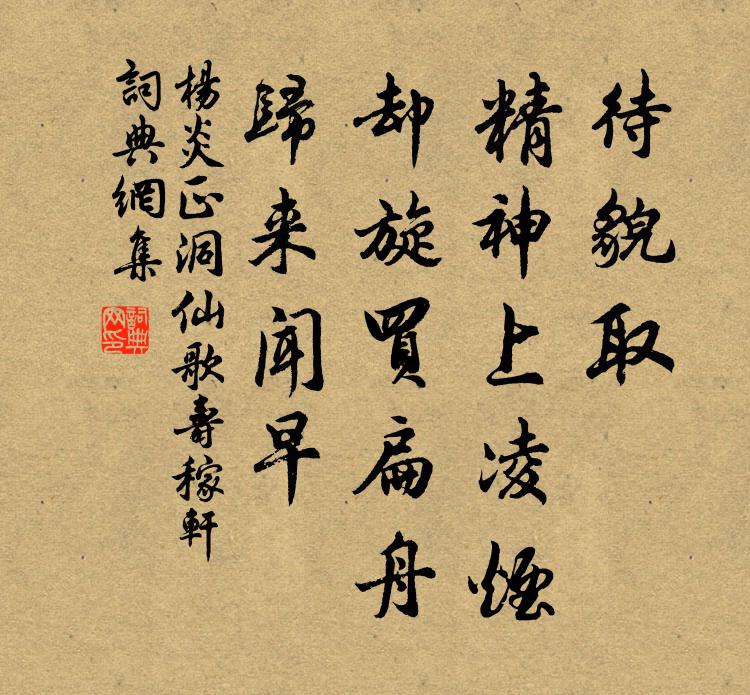 待貌取
精神上凌煙
却旋買扁舟
歸来聞早
楊炎正洞仙歌壽稼軒
詞典網集
詞典
网印